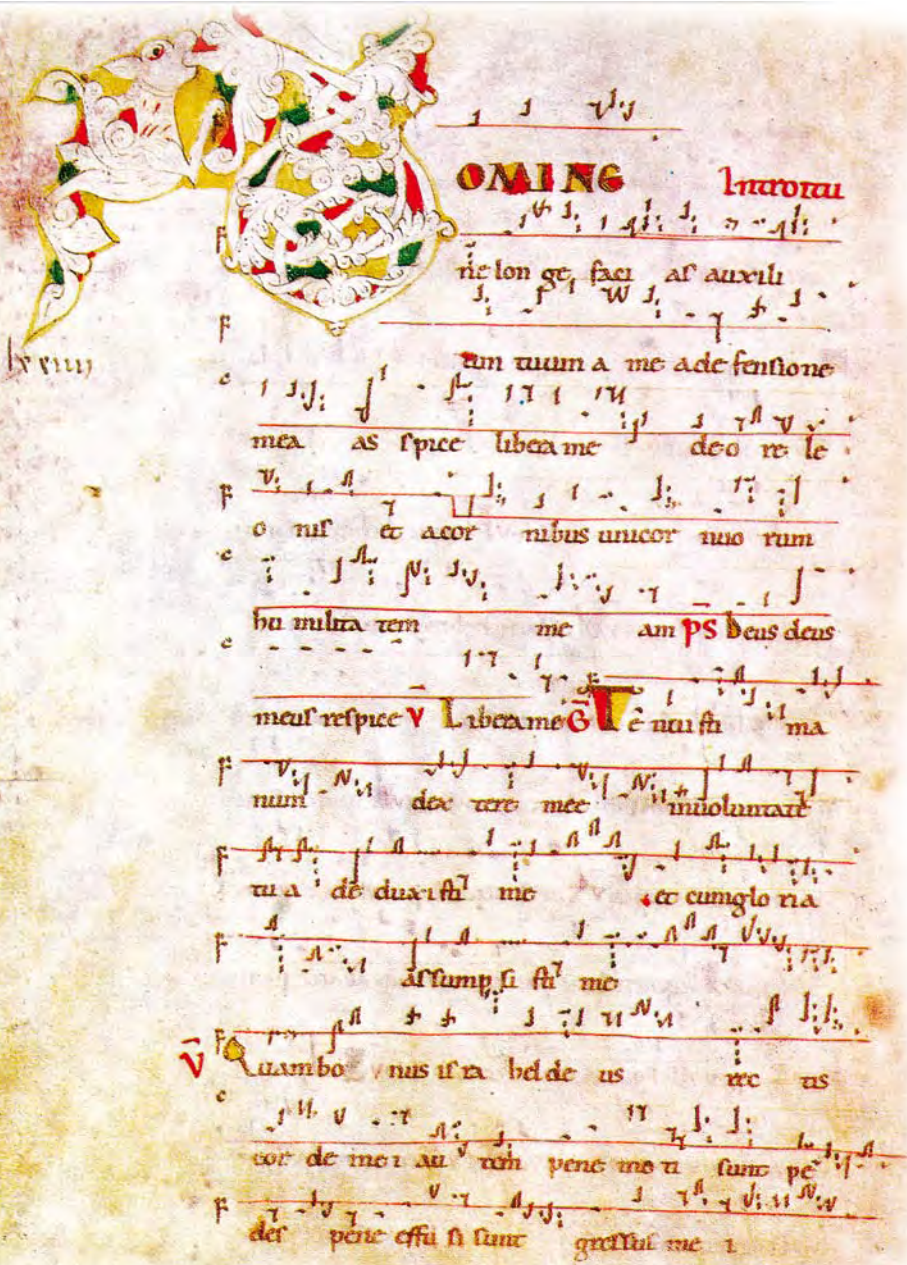 DOMINE Introitu
ne lon ge faci as auxili
um tuum a me ad de fensione
mea as spice libera me de o re le
o nis et a cor nibus unicor nuo rum
hu milita tem me am ps Deus deus
meus respice V Libera me G Te nui sti ma
num dex tere mee in uoluntate
tu a de duxi sti me et cum glo ria
assump si sti me
V Quam bo nus is ra hel de us rec tis
cor de mei au tem pene mo ti sunt pe
des pene effu si sunt gressus me i